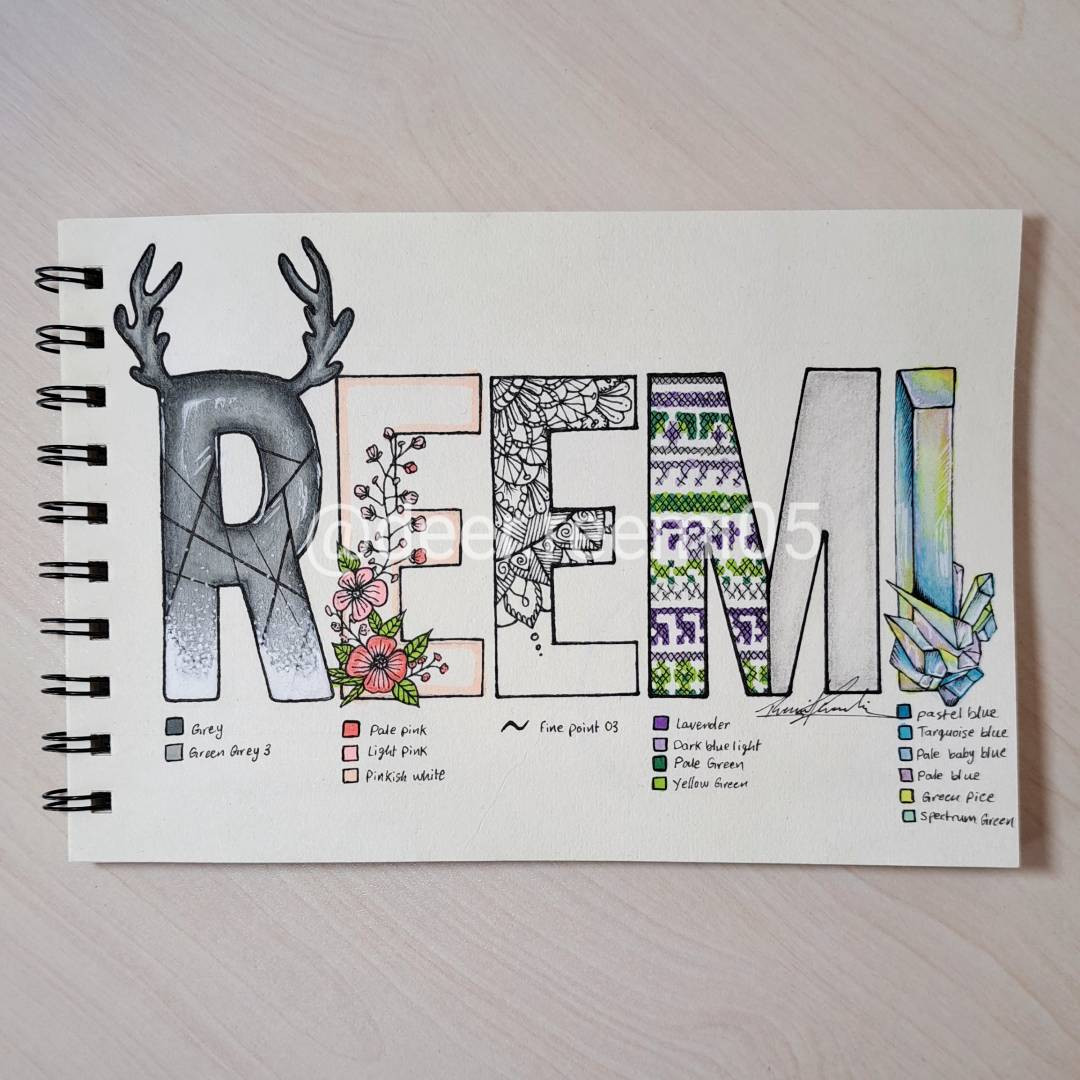 REEMI
Grey
Green Grey 3
Pale pink
Light Pink
Pinkish white
~ fine point 03
Lavender
Dark blue light
Pale Green
Yellow Green
pastel blue
Tarquoise blue
Pale baby blue
Pale blue
Green Pice
Spectrum Green